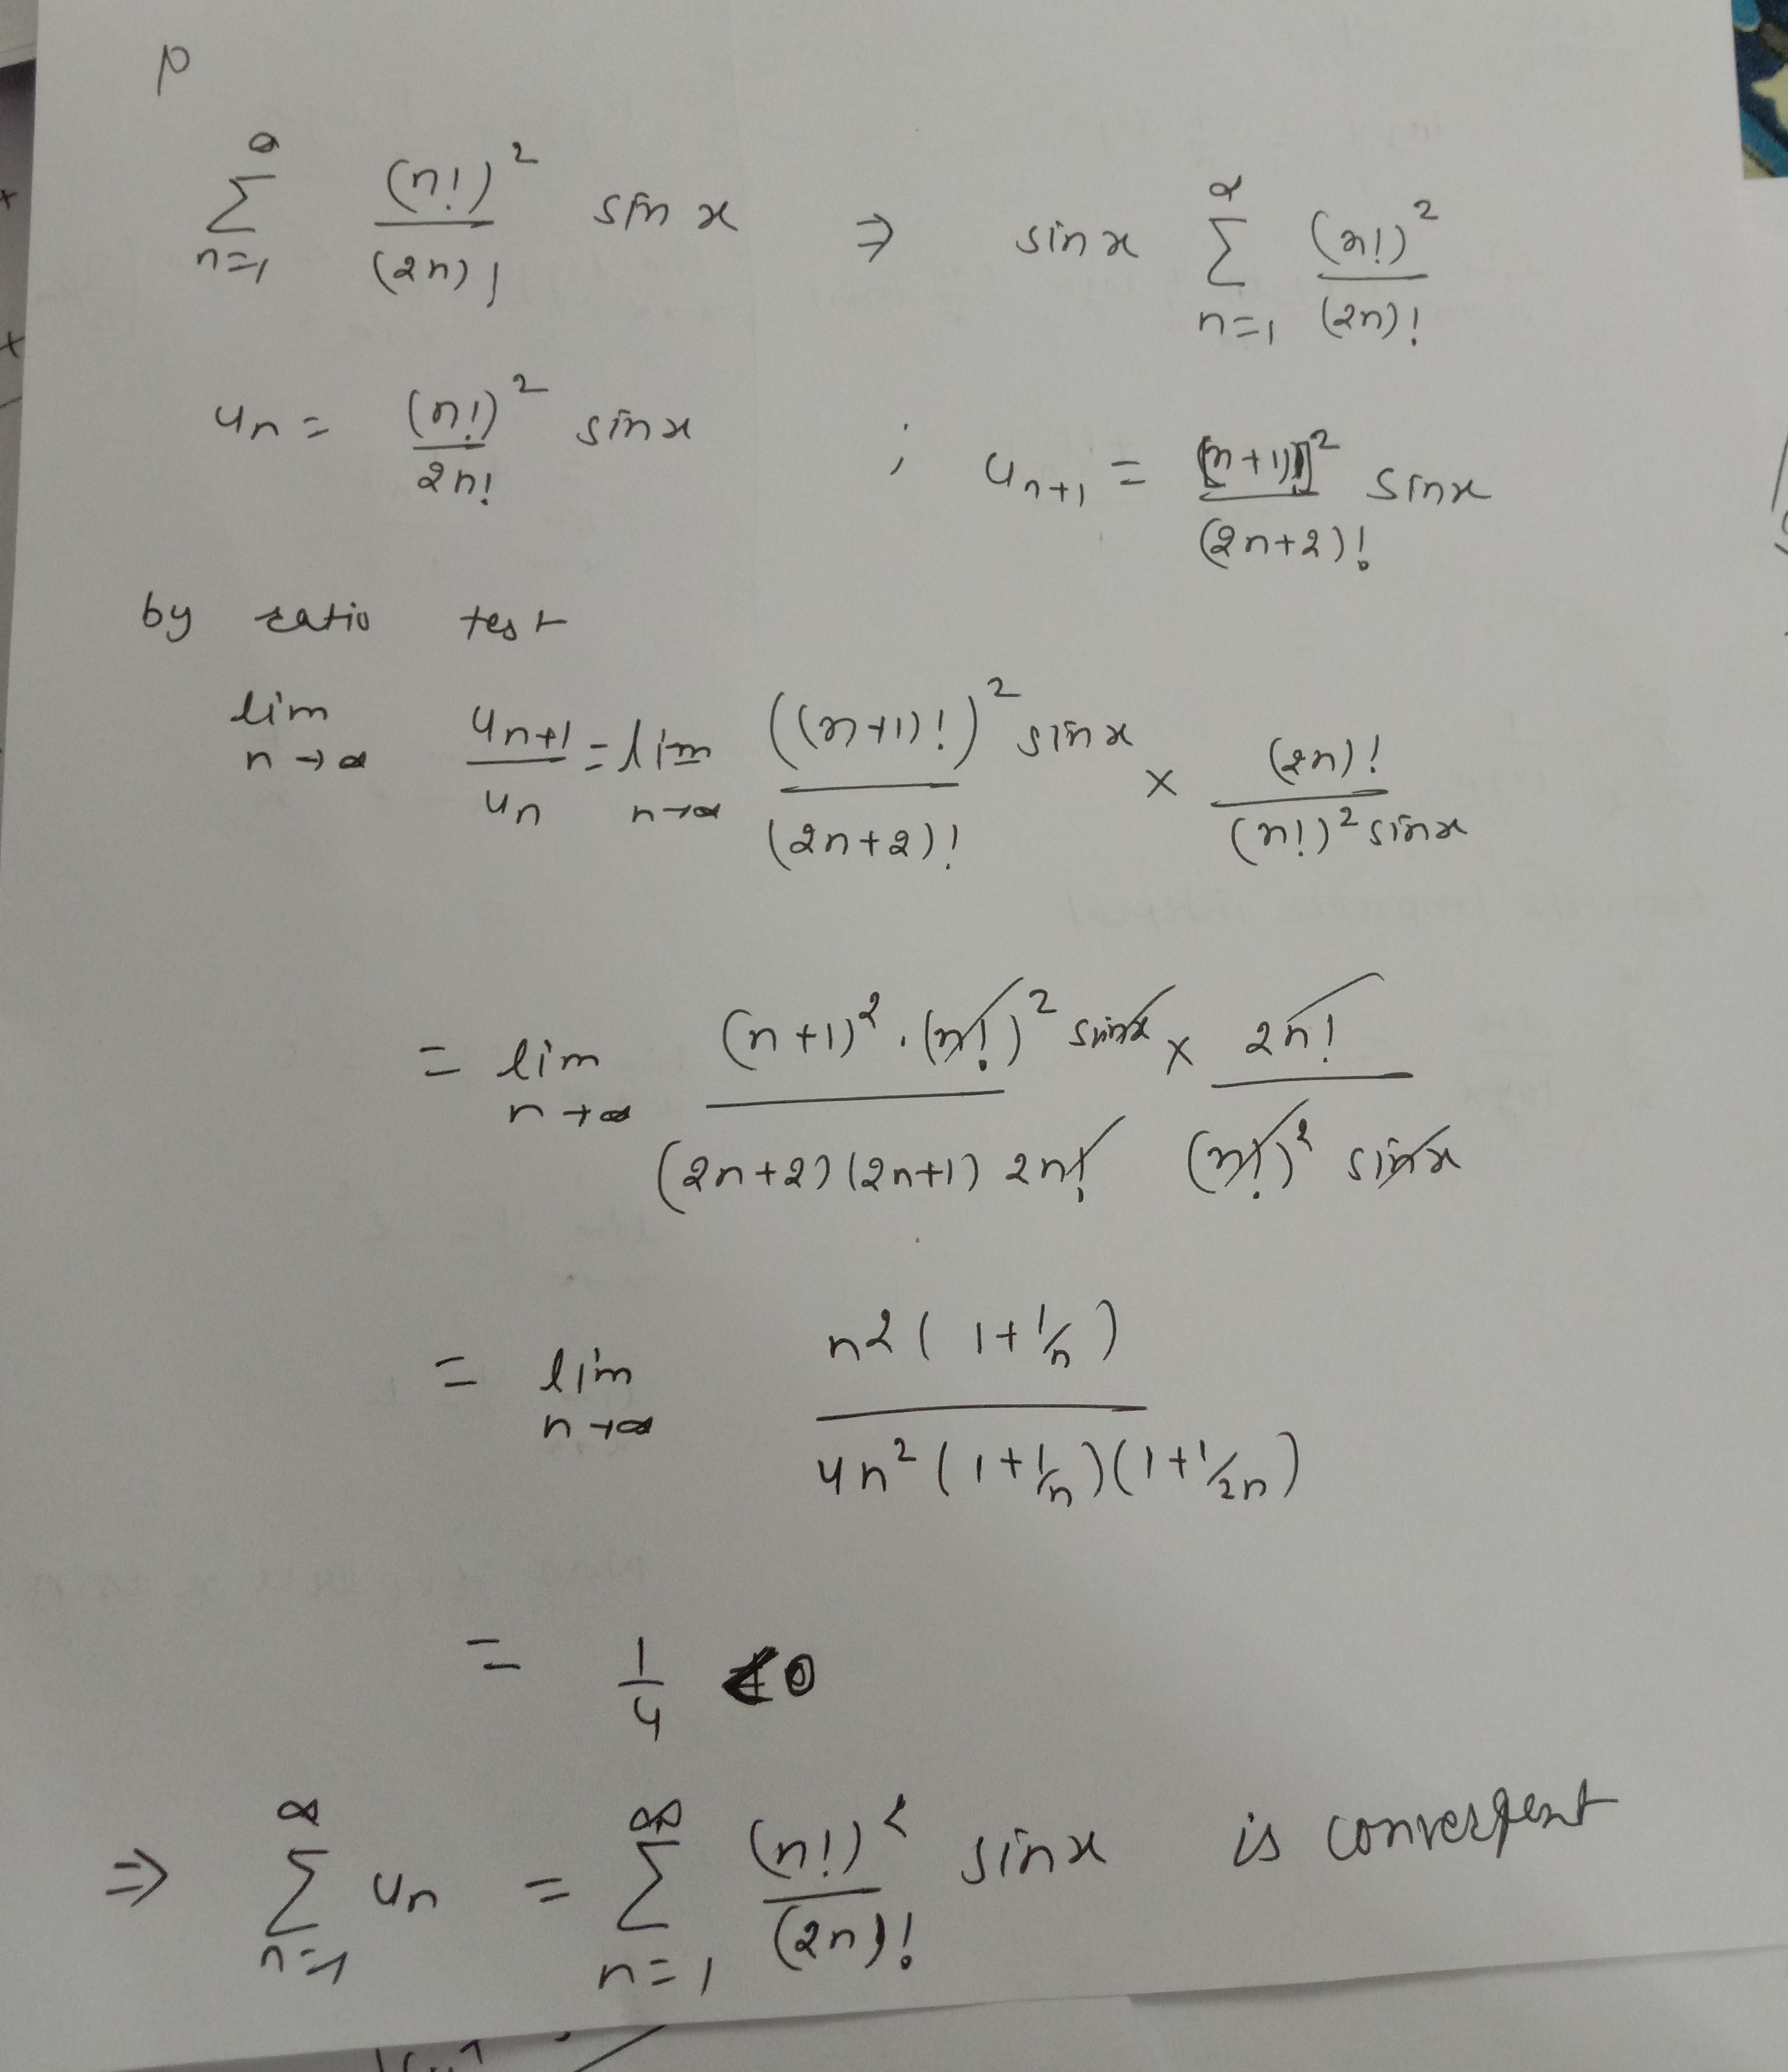 p
∑_{n=1}^{∞} (n!)²/(2n)! sin x ⇒ sin x ∑_{n=1}^{∞} (n!)²/(2n)!
u_n = (n!)²/2n! sin x ; u_{n+1} = [(n+1)!]²/(2n+2)! sin x
by ratio test
lim_{n→∞} u_{n+1}/u_n = lim_{n→∞} ((n+1)!)² sin x/(2n+2)! × (2n)!/(n!)² sin x
= lim_{n→∞} (n+1)² . (n!)² sin x/(2n+2)(2n+1) 2n! × 2n!/(n!)² sin x
= lim_{n→∞} n2(1+1/n)/4n²(1+1/n)(1+1/2n)
= 1/4 < 0
⇒ ∑_{n=1}^{∞} u_n = ∑_{n=1}^{∞} (n!)²/(2n)! sin x is convergent